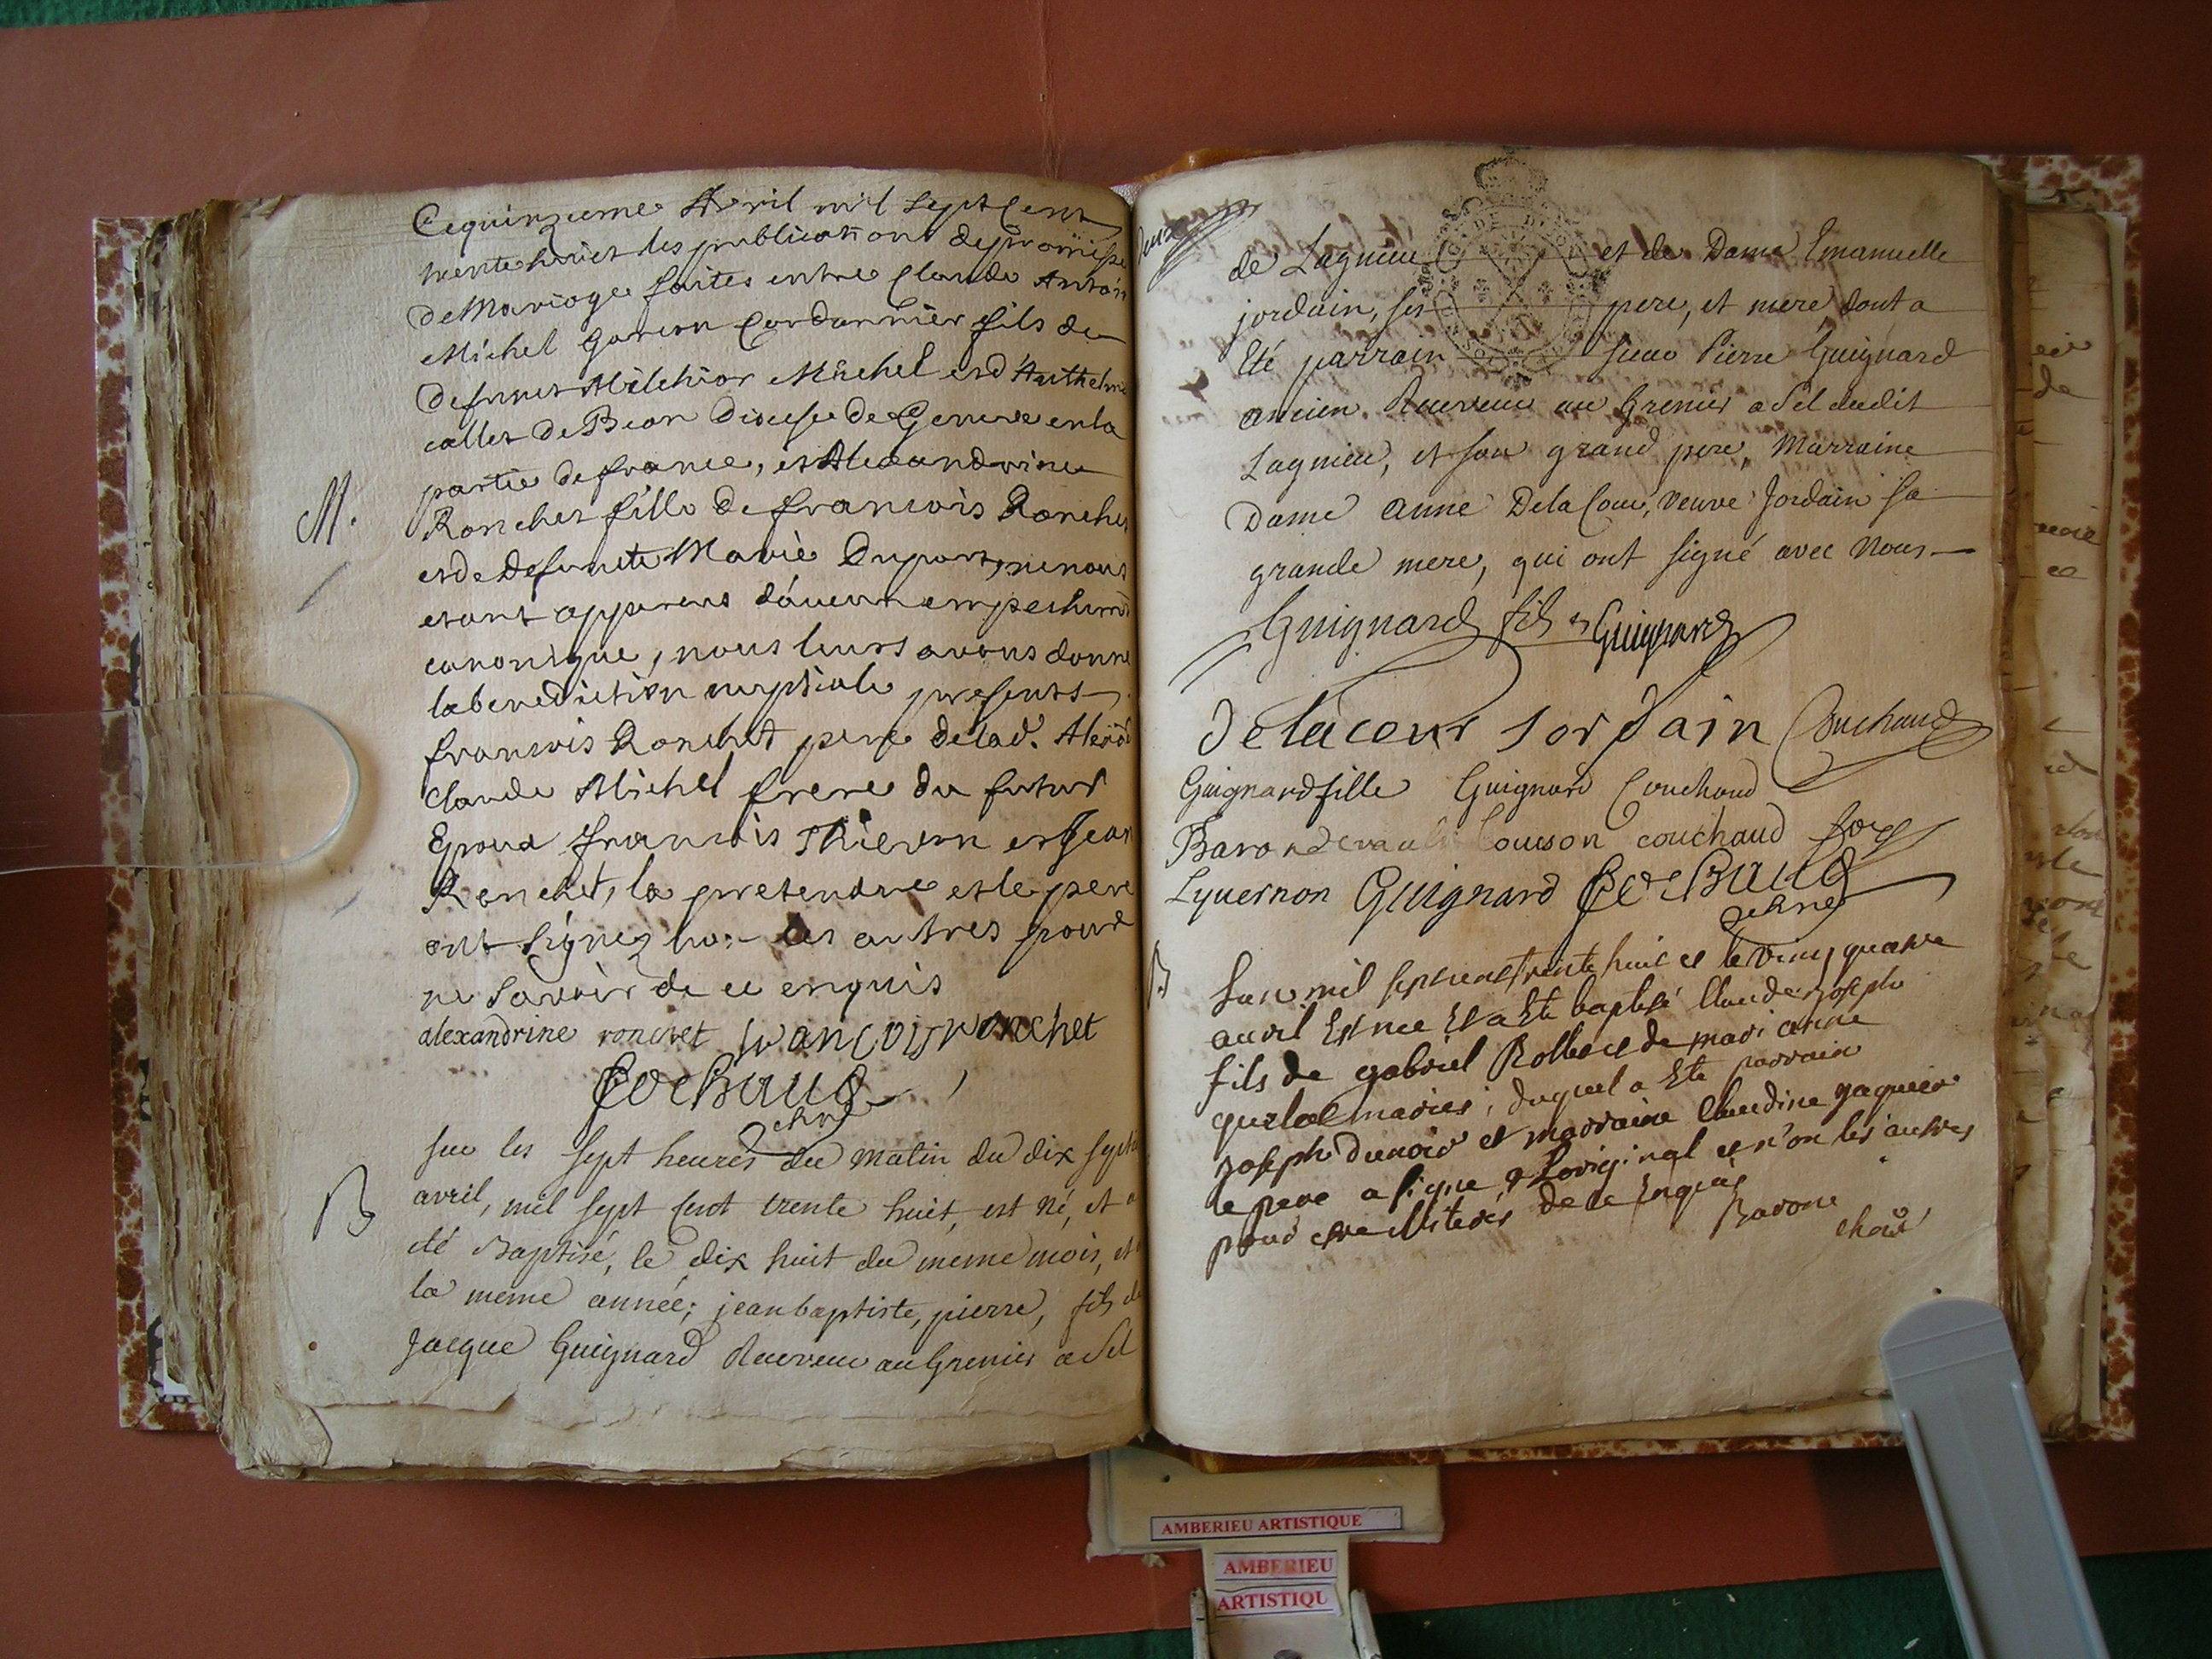 Ce quinzieme Avril mil sept Cent
trente huict les publications de promesse
De Mariage faites entre Claude Antoin
Michel Garcon Cordonnier fils de
Defunct Milchior Michel et d'Anthelme
callet De Beon Diocese de Geneve en la
partie de france, et Alexandrine
M.
Ronchet fille de francois Ronchet
et de Defuncte Marie Duport, ne nous
etant apparens d'aucun empechemt
canonique, nous leurs avons donné
la benediction nuptiale presents
francois Ronchet pere de lad.
Claude Michel frere du futur
Epoux francois et Jean
Ronchet, la pretendue et le pere
ont signez les autres pour
ne savoir de ce enquis
alexandrine ronchet francois ronchet
sur les sept heures du matin du dix sept
B
avril, mil sept Cent trente huit, est né, et a
été Baptisé, le dix huit du meme mois, et
la meme année; jean baptiste, pierre, fils de
Jacque Guignard Receveur au Grenier a Sel
de Lagnieu et de Dame Emanuelle
jordain, ses pere, et mere dont a
Eté parrain sieur Pierre Guignard
ancien Receveur au Grenier a Sel dudit
Lagnieu, et son grand pere, Marraine
Dame Anne Delacour, veuve Jordain sa
grande mere, qui ont signé avec Nous
Guignard fils Guignard
Delacour Jordain Couchaud
Guignard fille Guignard Couchaud
Baron Louison couchaud
Lyvernon Guignard
B
L'an mil sept cent trente huit et le vint quatre
auvril Est nee Et a Ete baptisé Claude joseph
fils de gabriel Rollet et de mari anne
maries, duquel a Ete parrain
joseph dunoir et marraine Claudine
le pere a signe a Loriginal et n'on les autres
pour etre Illiteres de ce Enquis
Barone
AMBERIEU ARTISTIQUE
AMBERIEU
ARTISTIQU